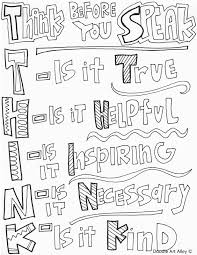 Think Before You Speak
T - Is it True
H - Is it Helpful
I - Is it Inspiring
N - Is it Necessary
K - Is it Kind
Doodle Art Alley ©